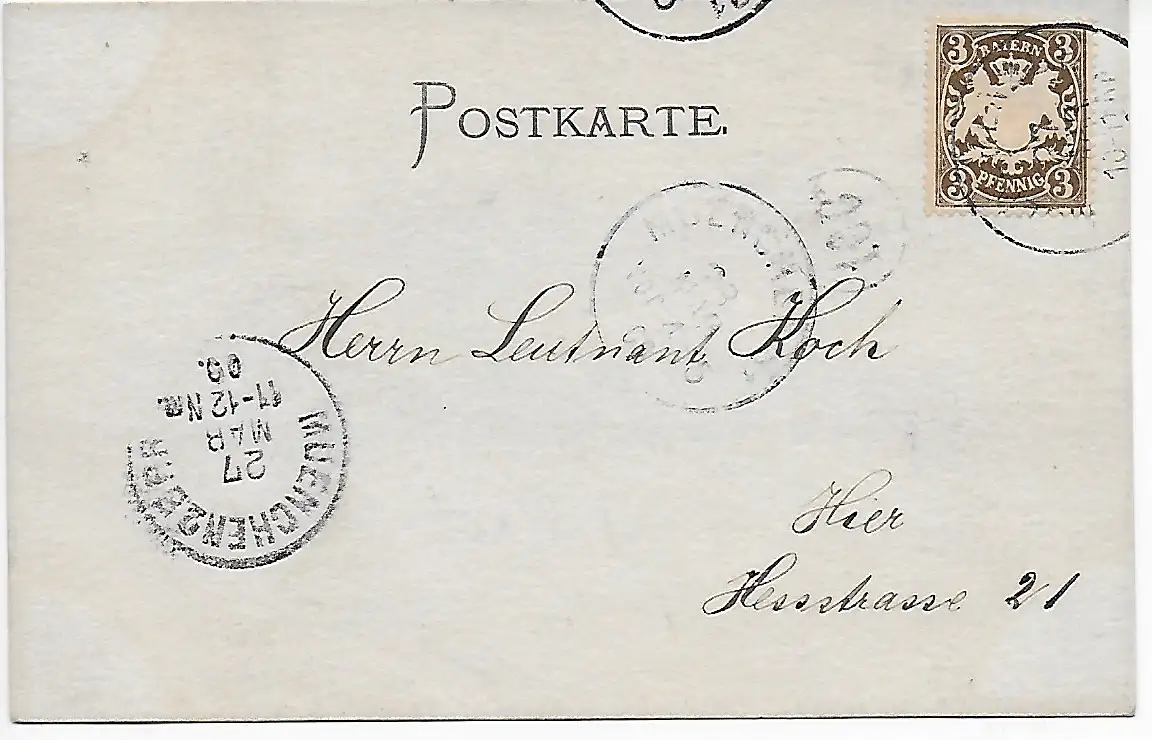 POSTKARTE.
3 BAYERN 3
3 PFENNIG 3
Herrn Leutnant Koch
Hier
Hessstrasse 21
MUENCHEN 2 B.P.
27
MAR
11-12 Nm.
00.
MUENCHEN
10-12